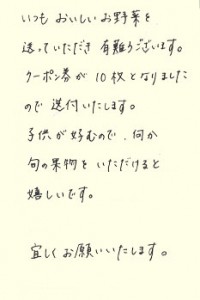 いつも おいしいお野菜を
送っていただき 有難うございます。
クーポン券が 10枚となりました
ので 送付いたします。
子供が好むので、何か
旬の果物を いただけると
嬉しいです。
宜しくお願いいたします。